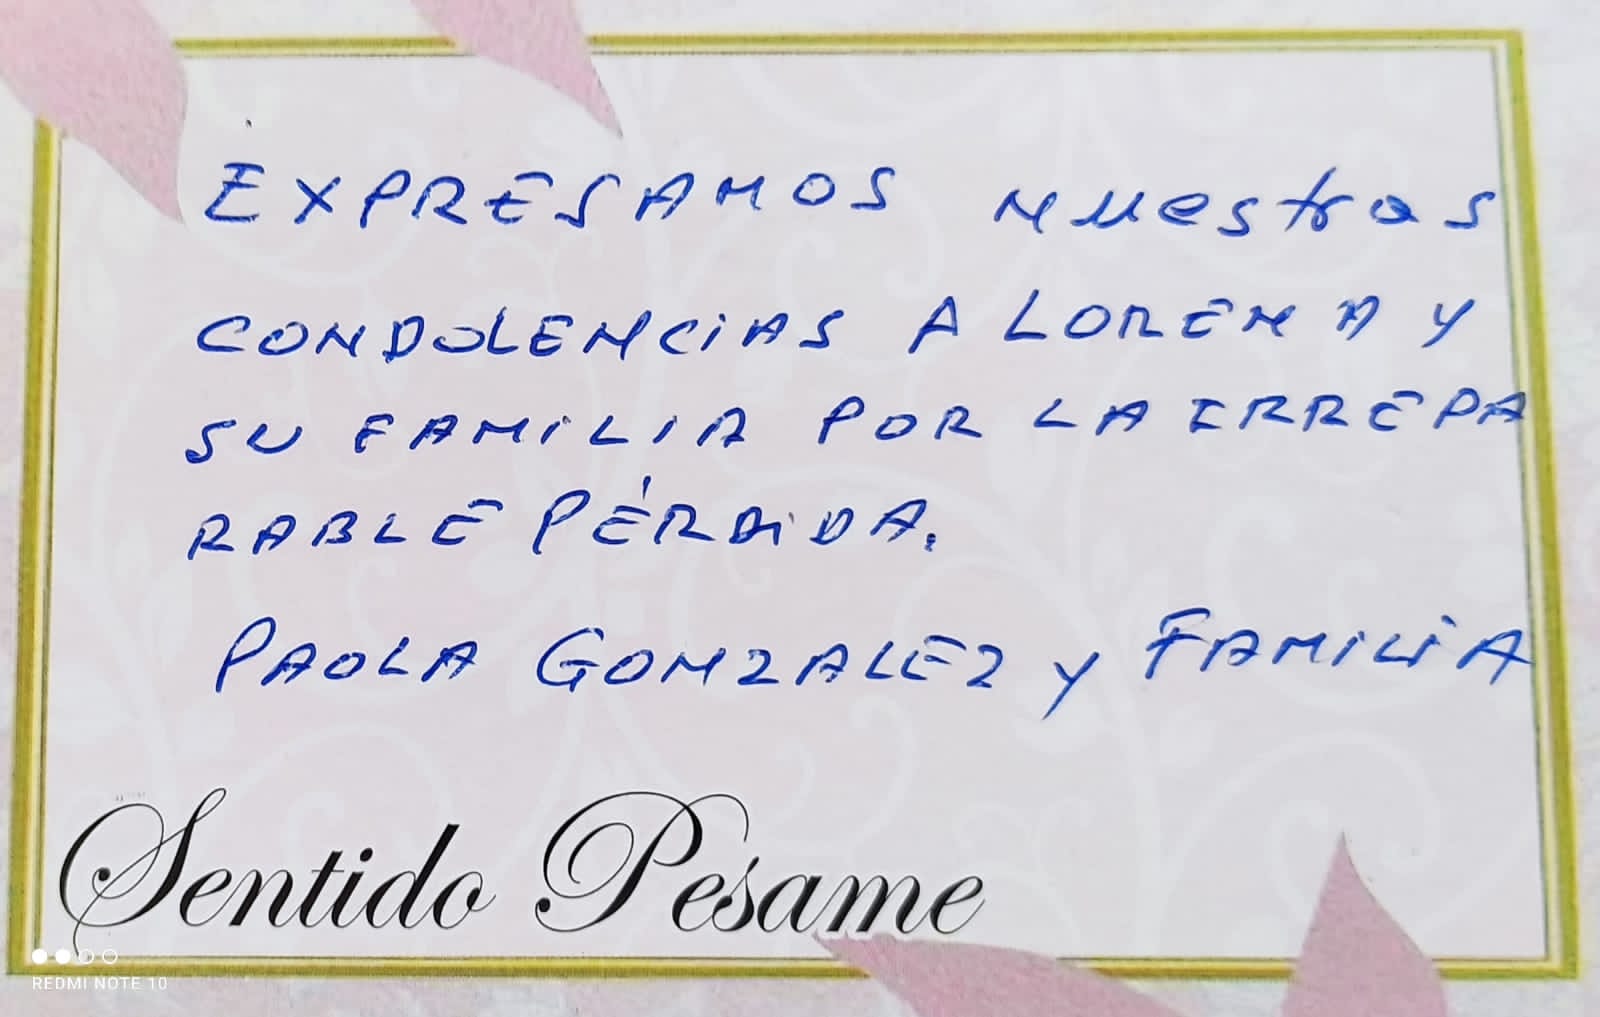 EXPRESAMOS nuestras
CONDOLENCIAS A LORENA Y
SU FAMILIA POR LA IRREPA
RABLE PÉRDIDA.
PAOLA GONZALEZ y FAMILIA
Sentido Pesame
REDMI NOTE 10